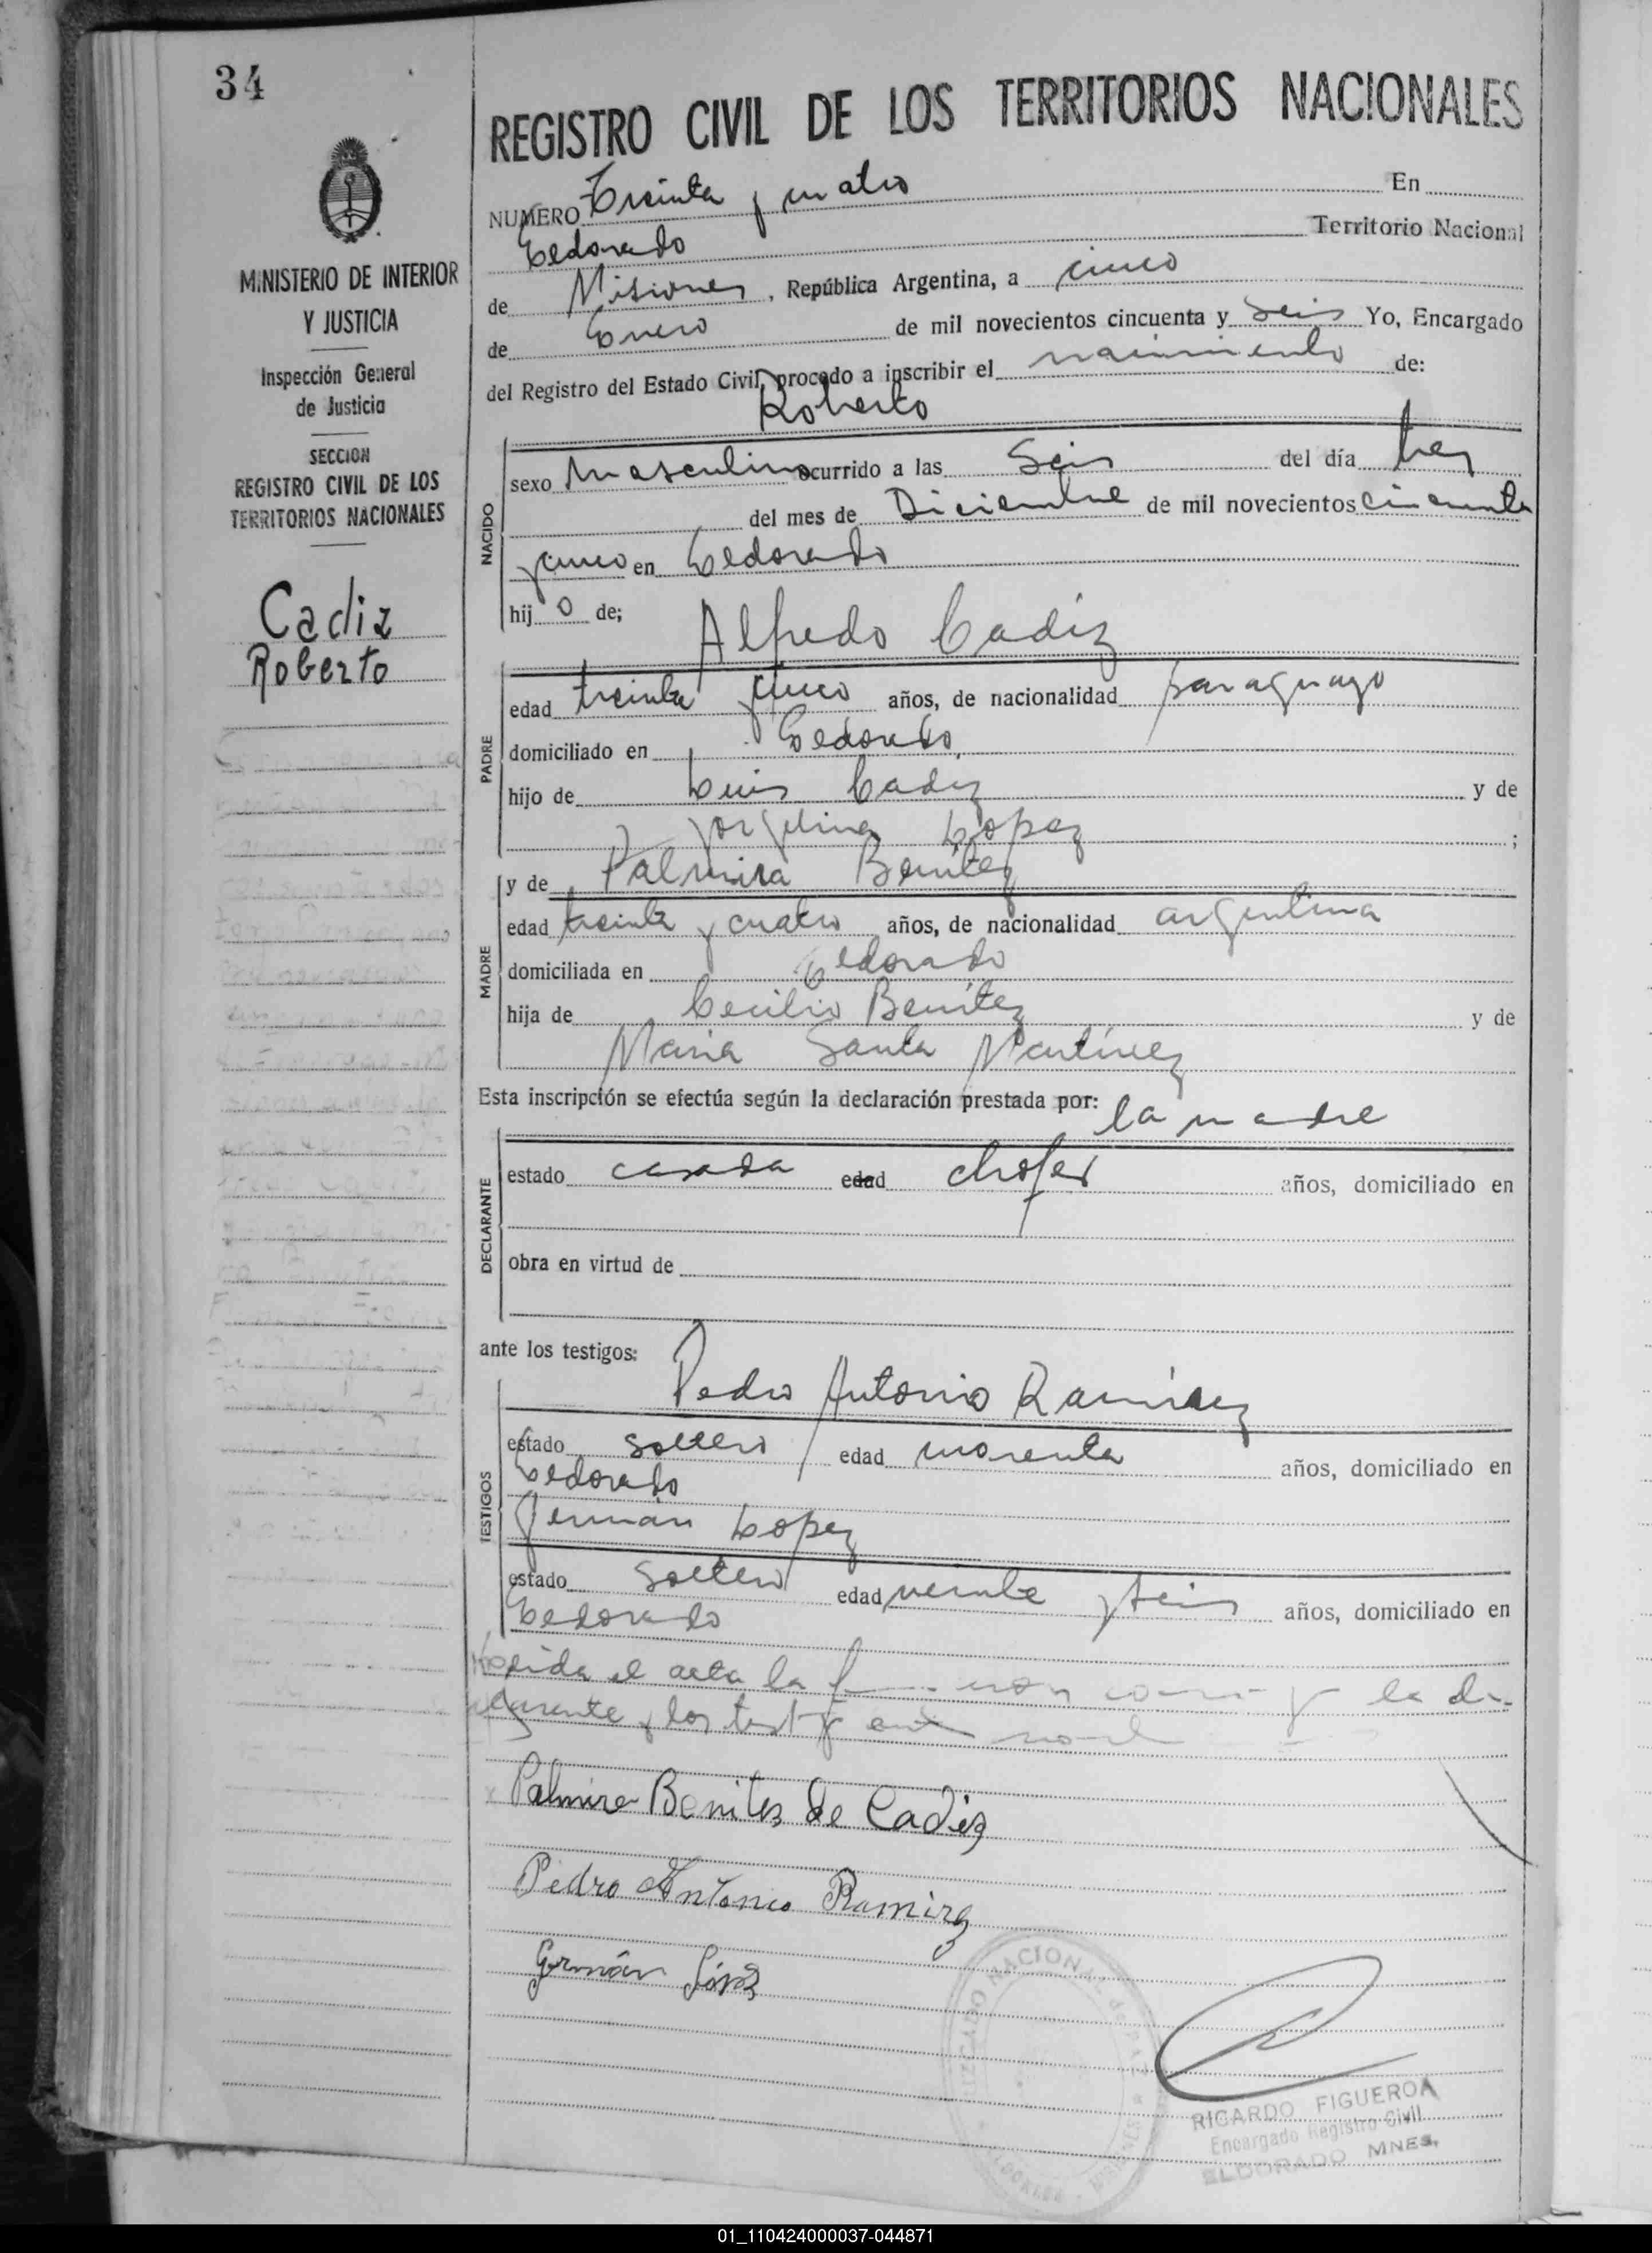 34
MINISTERIO DE INTERIOR
Y JUSTICIA
Inspección General
de Justicia
SECCION
REGISTRO CIVIL DE LOS
TERRITORIOS NACIONALES
Cadiz
Roberto
REGISTRO CIVIL DE LOS TERRITORIOS NACIONALES
NUMERO Treinta y cuatro En
Eldorado Territorio Nacional
de Misiones, República Argentina, a cinco
de Enero de mil novecientos cincuenta y seis Yo, Encargado
del Registro del Estado Civil, procedo a inscribir el nacimiento de:
Roberto
NACIDO
sexo masculino ocurrido a las Seis del día tres
del mes de Diciembre de mil novecientos cincuenta
y cinco en Eldorado
hij o de;
Alfredo Cadiz
PADRE
edad treinta y cinco años, de nacionalidad paraguayo
domiciliado en Eldorado
hijo de Luis Cadiz y de
Jorgelina Lopez ;
MADRE
y de Palmira Benítez
edad treinta y cuatro años, de nacionalidad argentina
domiciliada en Eldorado
hija de Cecilio Benítez y de
Maria Santa Martínez
Esta inscripción se efectúa según la declaración prestada por: la madre
DECLARANTE
estado casada edad chofer años, domiciliado en
obra en virtud de
ante los testigos:
Pedro Antonio Ramirez
TESTIGOS
estado soltero edad cuarenta años, domiciliado en
Eldorado
German Lopez
estado soltero edad veinte y seis años, domiciliado en
Eldorado
el acta la
y los
Palmira Benitez de Cadiz
Pedro Antonio Ramirez
Germán López
JUZGADO NACIONAL de PAZ
ELDORADO MISIONES
RICARDO FIGUEROA
Encargado Registro Civil
ELDORADO MNES.
01_110424000037-044871